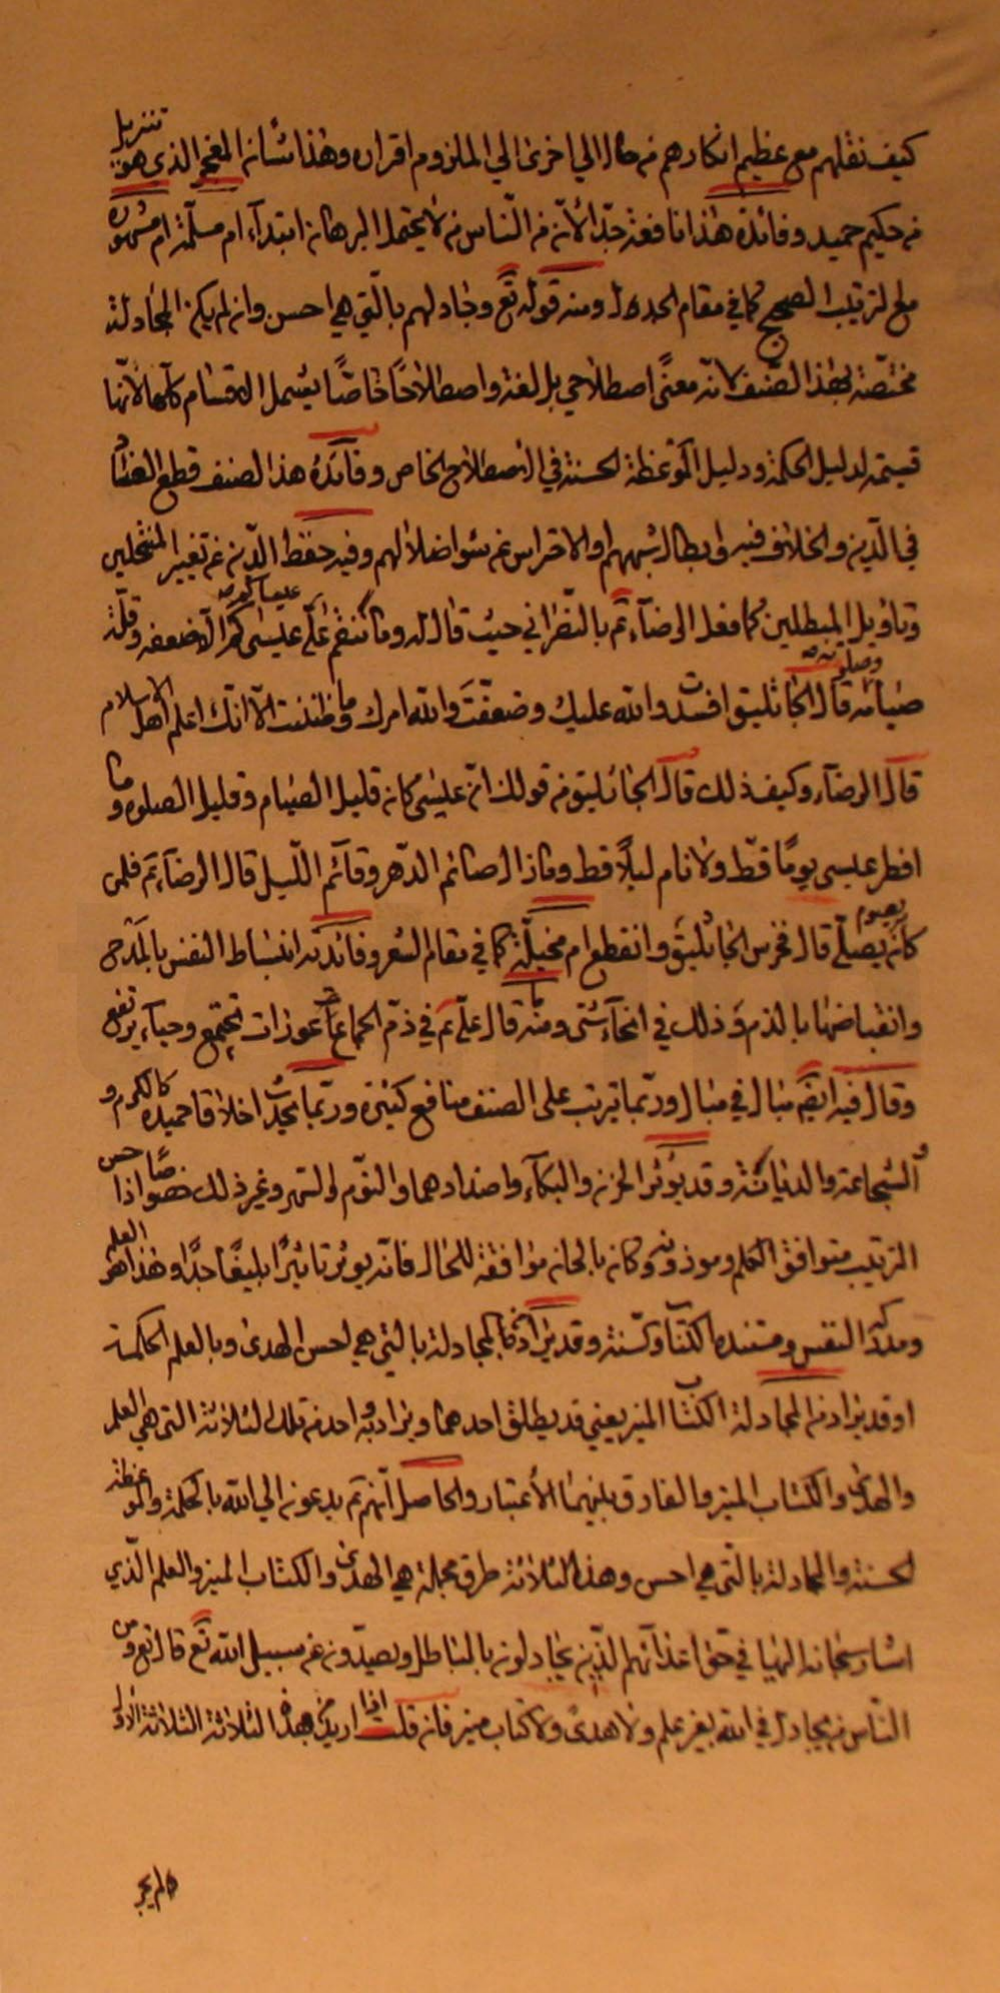 كيف نقلهم مع عظيم انكارهم من حال الي اخري الي الملزوم اقران وهذا شأن المعجز الذي هو تنزيل
من حكيم حميد وفائدة هذا نافعة جدّا لأنّ من النّاس من لا يحتمل البرهان ابتدآء ام مسلّمة ام مشهورة
مع الترتيب الصحيح كما في مقام الجدل ومنه قوله تع وجادلهم بالّتي هي احسن وان لم يكن المجادلة
مختصّة بهذا الصّنف لانّه معنًى اصطلاحي بل لغة واصطلاحًا خاصًّا يشمل الاقسام كلّها لأنّها
قسيمة لدليل الحكمة ودليل الموعظة الحسنة في الاصطلاح الخاص وفائدة هذا الصنف قطع العناد
في الّدين والخلاف فيه وابطال شبههم والاحتراس عن سوء اضلالهم وفيه حفظ الدّين عن تغيير المنتحلين
وتأويل المبطلين كما فعل الرضاء ع بالنّصراني حيث قال له وما ننقم علي عيسى كم الا ضعفه وقلّة
صيامه وصلوته قال الجاثليق افسدت والله عليك وضعّفت والله امرك وما ظننت الّا انّك اعلم اهل الاسلام
قال الرضاء وكيف ذلك قال الجاثليق من قولك انّ عيسى كان قليل الصيام وقليل الصلوة وما
افطر عيسى يومًا قطّ ولا نام ليلًا قط وما زال صائم الدّهر وقآئم اللّيل قال الرضاء ع فلمن
كان يصلّي يصوم قال فخرس الجاثليق وانقطع ام مخيلة كما في مقام الشعر وفائدته انبساط النفس بالمدح
وانقباضها بالذم وذلك في انحآء شتى ومنه ما قال علي ع في ذمّ الجماع عورات تجتمع وحيآء يرتفع
وقال فيه ايضًا مبال في مبال وربّما يترتب على الصنف منافع كثيرة وربّما يحدث اخلاقا حميدة كالكرم و
الشجاعة والديانة وقد يؤثر الحزن والبكآء واضدادهما والنّوم والسّهر وغير ذلك خصوصًا اذا حسن
الترتيب متوافق الكلم وموزونه وكان بالحان موافقة للحال فانّه يؤثر تاثيرًا بليغًا جدًّا وهذا هو العلم
ومدركه النفس ومستنده الكتاب والسّنة وقد يراد من المجادلة بالتي هي احسن الهدى وبالعلم الحكمة
او قد يراد من المجادلة الكتاب المنير يعني قد يطلق احدهما ويراد به واحد من تلك الثلاثة التي هي العلم
والهدى والكتاب المنير والفارق بينهما الأعتبار والحاصل انّهم ع يدعون الي الله بالحكمة والموعظة
الحسنة والمجادلة بالّتي هي احسن وهذه الثلاثة طرق مجملة هي الهدى والكتاب المنير والعلم الّذي
اشار سبحانه اليها في حق اعدائهم الّذين يجادلون بالباطل ويصدّون عن سبيل الله تع قال تع ومن
النّاس من يجادل في الله بغير علم ولا هدًى ولا كتاب منير فان قلت اذا اريد من هذه الثلاثة الثلاثة الاول